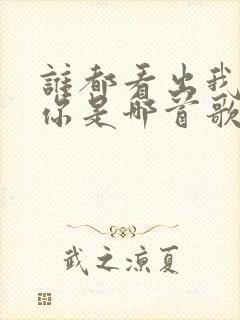 誰都看出我
你是哪首歌
武之凉夏